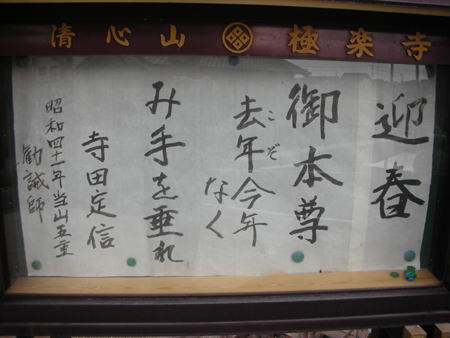 清心山 極楽寺
迎春
御本尊
去年今年
こぞ
なく
み手を垂れ
寺田定信
昭和四十一年当山五重
勧誡師